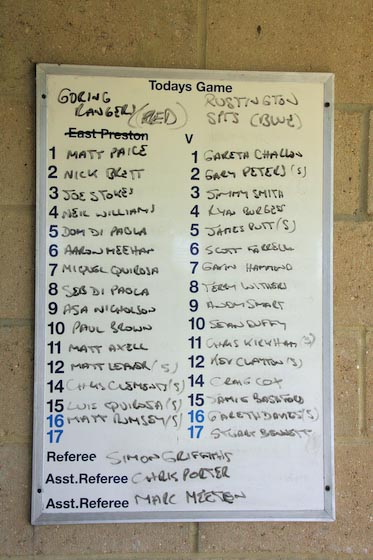 Todays Game
GORING RUSTINGTON
RANGERS (RED) SPTS (BLUE)
East Preston V
1 MATT PAICE 1 GARETH CHALLON
2 NICK BRETT 2 GARY PETERS (S)
3 JOE STOKES 3 JIMMY SMITH
4 NEIL WILLIAMS 4 RYAN BURGESS
5 DOM DI PAOLA 5 JAMES RUTT (S)
6 AARON MEEHAN 6 SCOTT FARRELL
7 MIGUEL QUIROSA 7 GAVIN HAMMOND
8 SEB DI PAOLA 8 TERRY WITHERS
9 ASA NICHOLSON 9 ANDY SMART
10 PAUL BROWN 10 SEAN DUFFY
11 MATT AXELL 11 CHRIS KIRKHAM (S)
12 MATT (S) 12 KEV CLAYTON (S)
14 CHRIS CLEMENTS (S) 14 CRAIG COX
15 LUIS QUIROSA (S) 15 JAMIE BASHFORD
16 MATT RUMSEY (S) 16 GARETH DAVIES (S)
17 17 STUART BENNETT
Referee SIMON GRIFFITHS
Asst.Referee CHRIS PORTER
Asst.Referee MARC MEETEN